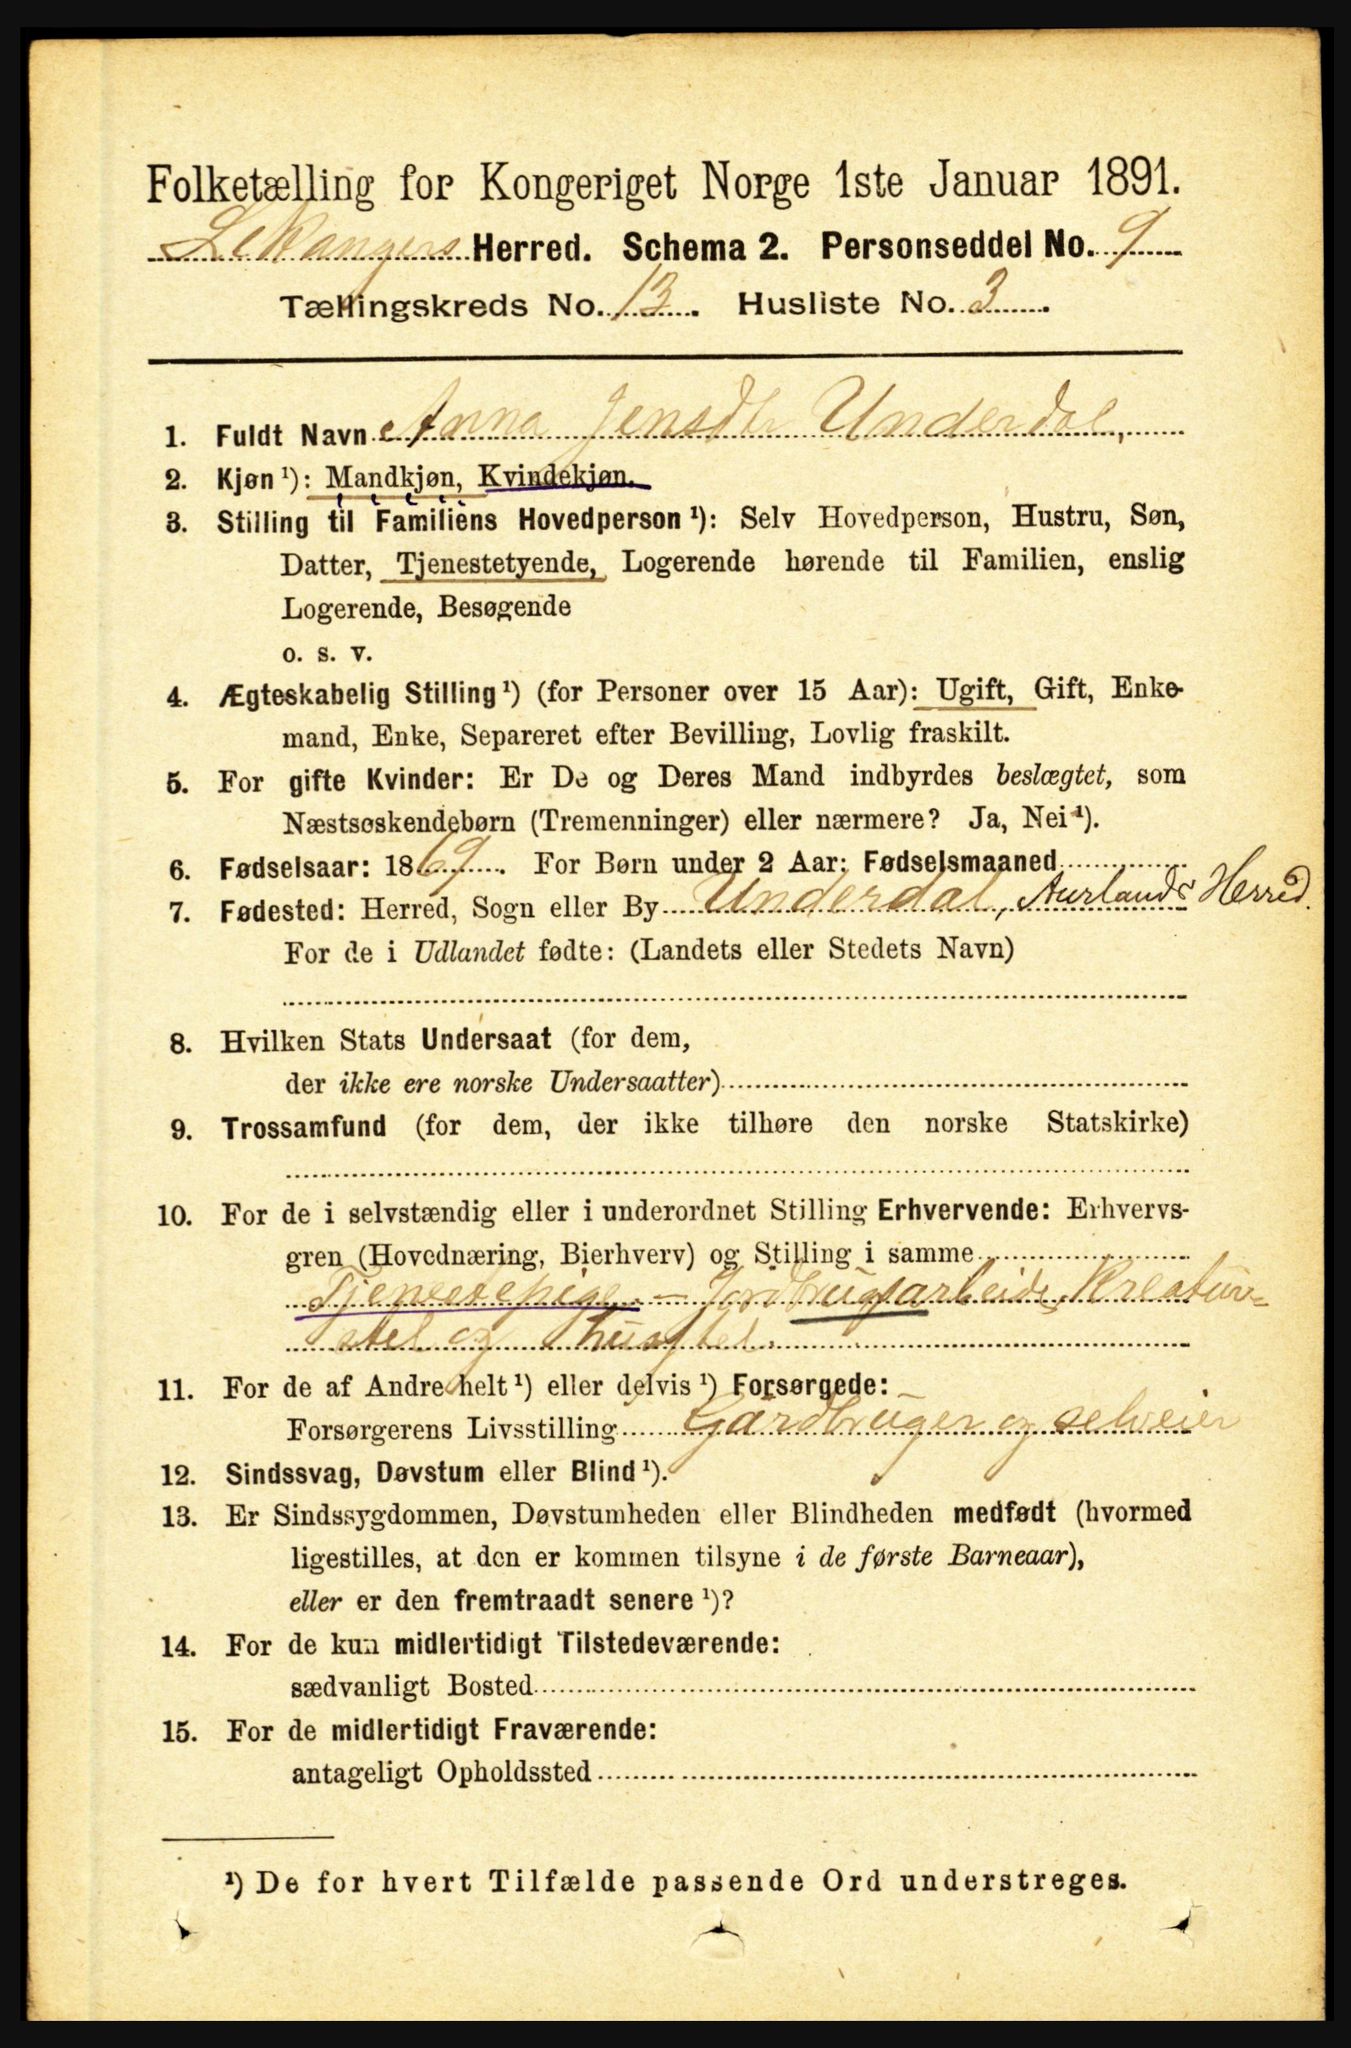 Folketælling for Kongeriget Norge 1ste Januar 1891.
Lekangers Herred. Schema 2. Personseddel No. 9
Tællingskreds No. 13. Husliste No. 3.
1. Fuldt Navn Anna Jensdtr Underdal,
2. Kjøn ¹): Mandkjøn, Kvindekjøn.
3. Stilling til Familiens Hovedperson ¹): Selv Hovedperson, Hustru, Søn,
Datter, Tjenestetyende, Logerende hørende til Familien, enslig
Logerende, Besøgende
o. s. v.
4. Ægteskabelig Stilling ¹) (for Personer over 15 Aar): Ugift, Gift, Enke-
mand, Enke, Separeret efter Bevilling, Lovlig fraskilt.
5. For gifte Kvinder: Er De og Deres Mand indbyrdes beslægtet, som
Næstsøskendebørn (Tremenninger) eller nærmere? Ja, Nei ¹).
6. Fødselsaar: 1869. For Børn under 2 Aar: Fødselsmaaned
7. Fødested: Herred, Sogn eller By Underdal, Aurlands Herred.
For de i Udlandet fødte: (Landets eller Stedets Navn)
8. Hvilken Stats Undersaat (for dem,
der ikke ere norske Undersaatter)
9. Trossamfund (for dem, der ikke tilhøre den norske Statskirke)
10. For de i selvstændig eller i underordnet Stilling Erhvervende: Erhvervs-
gren (Hovednæring, Bierhverv) og Stilling i samme
Tjenestepige. – Jordbrugsarbeide, Kreatur-
stel og husstel.
11. For de af Andre helt ¹) eller delvis ¹) Forsørgede:
Forsørgerens Livsstilling Gårdbruger og selveier
12. Sindssvag, Døvstum eller Blind ¹).
13. Er Sindssygdommen, Døvstumheden eller Blindheden medfødt (hvormed
ligestilles, at den er kommen tilsyne i de første Barneaar),
eller er den fremtraadt senere ¹)?
14. For de kun midlertidigt Tilstedeværende:
sædvanligt Bosted
15. For de midlertidigt Fraværende:
antageligt Opholdssted
¹) De for hvert Tilfælde passende Ord understreges.